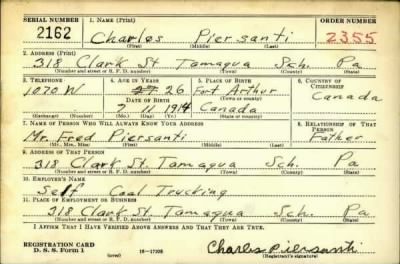 SERIAL NUMBER 1. NAME (Print) ORDER NUMBER
2162 Charles Piersanti 2355
(First) (Middle) (Last)
2. ADDRESS (Print)
318 Clark St Tamaqua Sch. Pa
(Number and street or R. F. D. number) (Town) (County) (State)
3. TELEPHONE 4. AGE IN YEARS 5. PLACE OF BIRTH 6. COUNTRY OF CITIZENSHIP
1070 W 27 26 Fort Arthur Canada
DATE OF BIRTH (Town or county)
7 11 1914 Canada
(Exchange) (Number) (Mo.) (Day) (Yr.) (State or country)
7. NAME OF PERSON WHO WILL ALWAYS KNOW YOUR ADDRESS 8. RELATIONSHIP OF THAT PERSON
Mr. Fred Piersanti Father
(Mr., Mrs., Miss) (First) (Middle) (Last)
9. ADDRESS OF THAT PERSON
318 Clark St. Tamaqua Sch. Pa
(Number and street or R. F. D. number) (Town) (County) (State)
10. EMPLOYER'S NAME
Self Coal Trucking
11. PLACE OF EMPLOYMENT OR BUSINESS
318 Clark St Tamaqua Sch. Pa
(Number and street or R. F. D. number) (Town) (County) (State)
I AFFIRM THAT I HAVE VERIFIED ABOVE ANSWERS AND THAT THEY ARE TRUE.
REGISTRATION CARD
D. S. S. Form 1 (over) Charles Piersanti
(Registrant's signature)